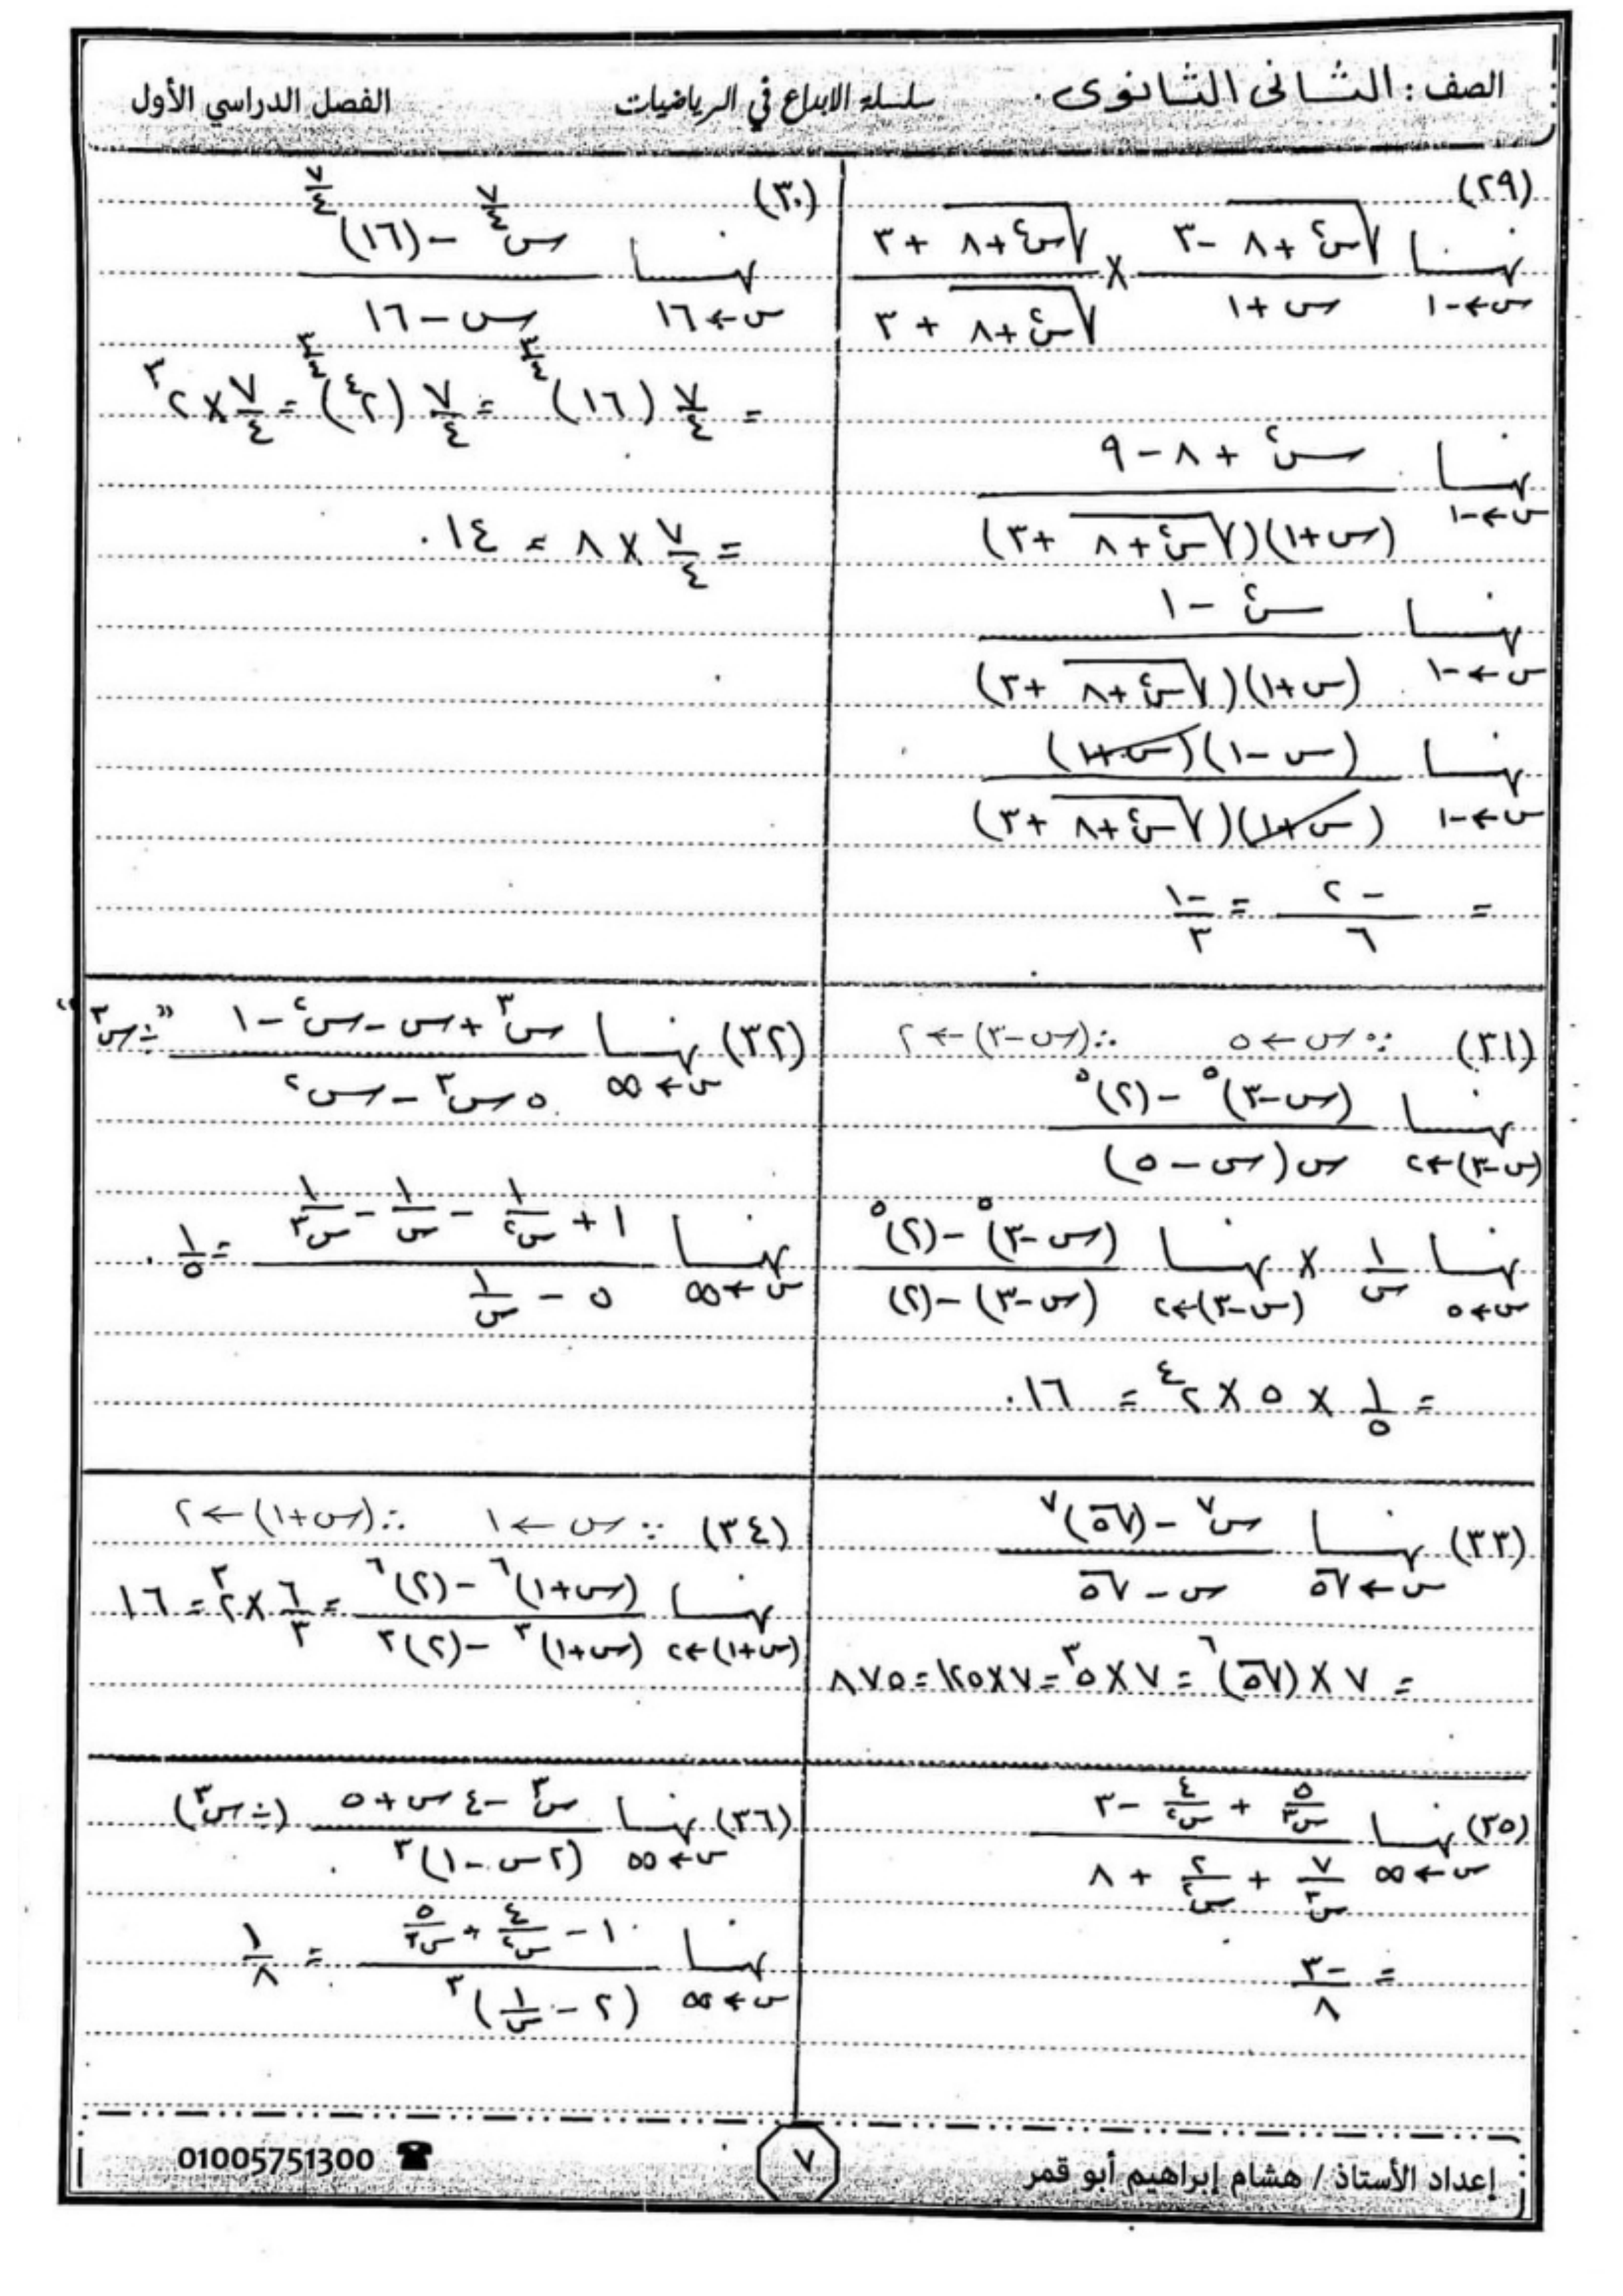 الصف : الثانى الثانوى . سلسلة الابداع في الرياضيات الفصل الدراسي الأول
(٢٩)
نهــا س←-١ (√(س٢ + ٨) - ٣)/(س + ١) × (√(س٢ + ٨) + ٣)/(√(س٢ + ٨) + ٣)
نهــا س←-١ (س٢ + ٨ - ٩)/((س+١)(√(س٢ + ٨) + ٣))
نهــا س←-١ (س٢ - ١)/((س+١)(√(س٢ + ٨) + ٣))
نهــا س←-١ ((س - ١)(س+١))/((س+١)(√(س٢ + ٨) + ٣))
= -٢/٦ = -١/٣
(٣٠)
نهــا س←١٦ (س^(٧/٤) - (١٦)^(٧/٤))/(س - ١٦)
= ٧/٤ (١٦)^(٣/٤) = ٧/٤ (٢^٤)^(٣/٤) = ٧/٤ × ٢^٣
= ٧/٤ × ٨ = ١٤ .
(٣١) ∵ س ← ٥ ∴ (س-٣) ← ٢
نهــا (س-٣)←٢ ((س-٣)^٥ - (٢)^٥)/(س(س - ٥))
نهــا س←٥ ١/س × نهــا (س-٣)←٢ ((س-٣)^٥ - (٢)^٥)/((س-٣) - (٢))
= ١/٥ × ٥ × ٢^٤ = ١٦ .
(٣٢) نهــا س←∞ (س^٣ + س - س^٢ - ١)/(٥س^٣ - س^٢) "÷ س^٣"
نهــا س←∞ (١ + ١/س^٢ - ١/س - ١/س^٣)/(٥ - ١/س) = ١/٥ .
(٣٣) نهــا س←√٥ (س^٧ - (√٥)^٧)/(س - √٥)
= ٧ × (√٥)^٦ = ٧ × ٥^٣ = ٧ × ١٢٥ = ٨٧٥
(٣٤) ∵ س ← ١ ∴ (س+١) ← ٢
نهــا (س+١)←٢ ((س+١)^٦ - (٢)^٦)/((س+١)^٣ - (٢)^٣) = ٦/٣ × ٢^٣ = ١٦
(٣٥) نهــا س←∞ (٥/س^٣ + ٤/س^٢ - ٣)/(٧/س^٣ + ٢/س^٢ + ٨)
= -٣/٨
(٣٦) نهــا س←∞ (س^٣ - ٤س + ٥)/(٢س - ١)^٣ (÷ س^٣)
نهــا س←∞ (١ - ٤/س^٢ + ٥/س^٣)/(٢ - ١/س)^٣ = ١/٨
إعداد الأستاذ / هشام إبراهيم أبو قمر ٧ 01005751300